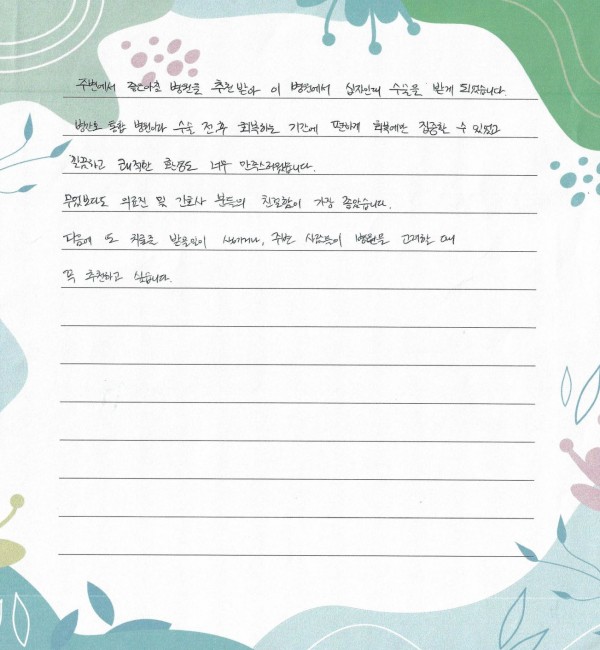 주변에서 좋은아침 병원을 추천받아 이 병원에서 십자인대 수술을 받게 되었습니다.
통합 병원이라 수술 전후 회복하는 기간에 편하게 회복에만 집중할 수 있었고
깔끔하고 쾌적한 환경도 너무 만족스러웠습니다.
무엇보다도 의료진 및 간호사 분들의 친절함이 가장 좋았습니다.
다음에 또 치료를 받을일이 생기거나, 주변 사람들이 병원을 고려할 때
꼭 추천하고 싶습니다.